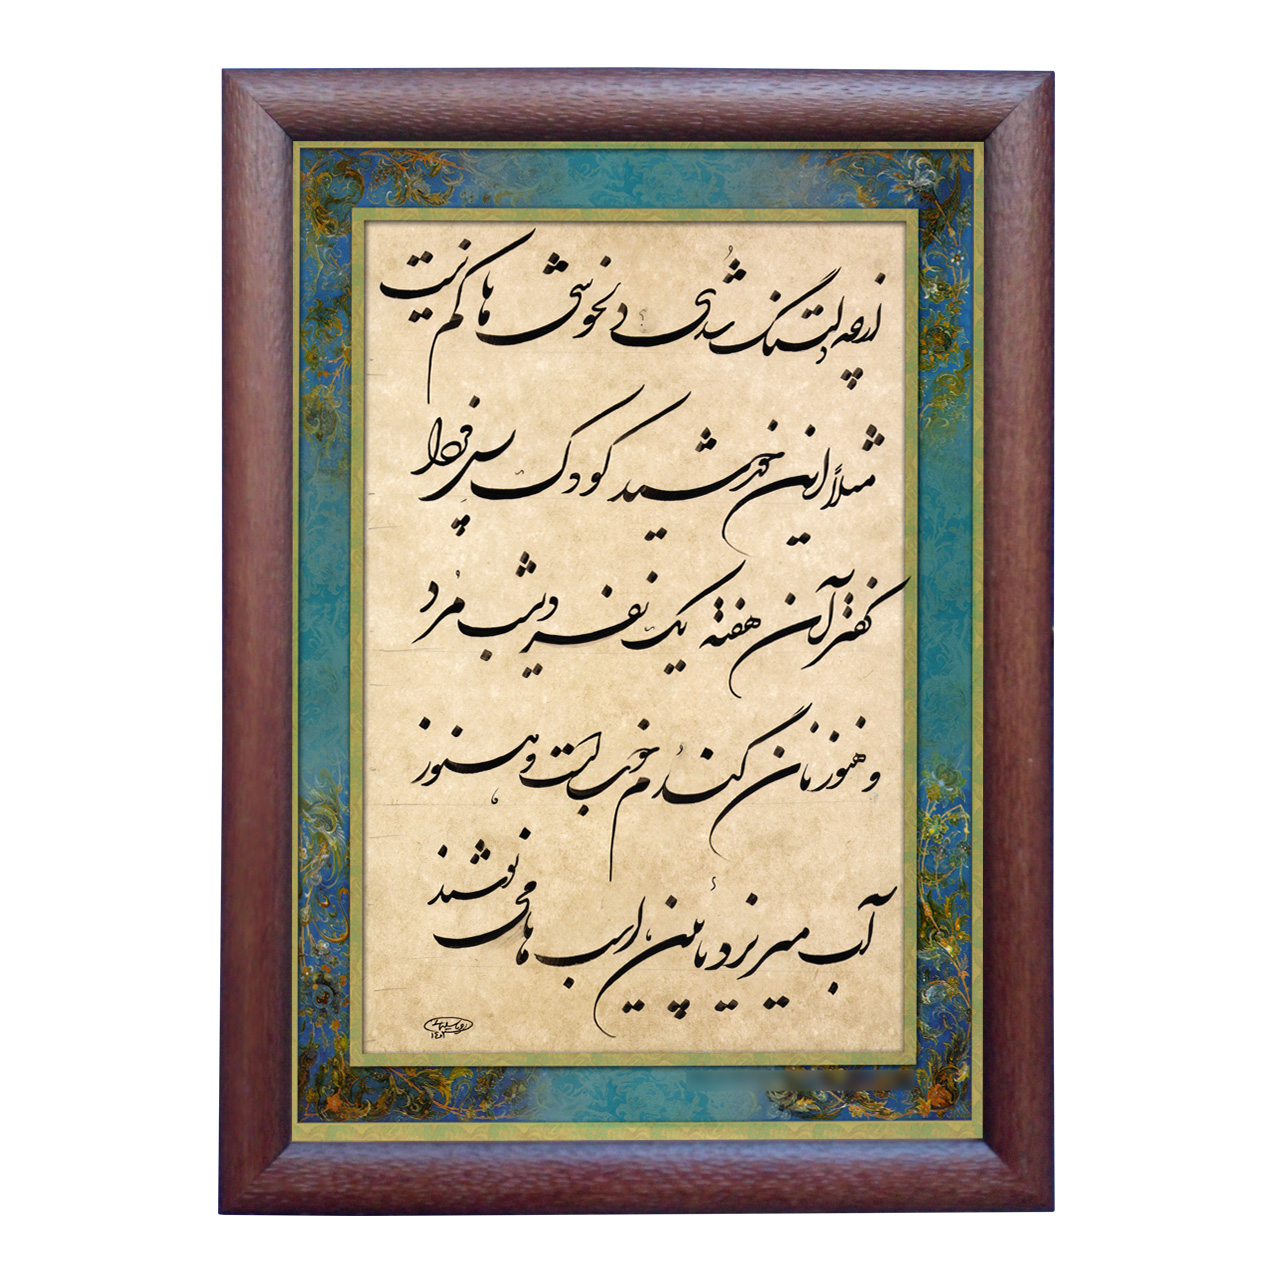 از چه دلتنگ شدی دلخوشی ها کم نیست
مثلاً این خورشید کودک پس فردا
کفتر آن هفته یک نفر دیشب مُرد
و هنوز نان گندم خوب است و هنوز
آب میریزد پائین، اسب ها می نوشند